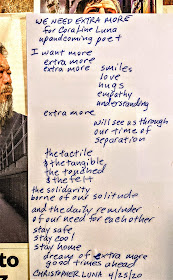 WE NEED EXTRA MORE
for CoraLine Luna
upandcoming poet
I want more
extra more
extra more smiles
love
hugs
empathy
understanding
extra more
will see us through
our time of
separation
the tactile
& the tangible,
the touched
& the felt
the solidarity
borne of our solitude
and the daily reminder
of our need for each other
stay safe,
stay cool
stay home
dream of extra more
good times ahead
CHRISTOPHER LUNA 4/25/20